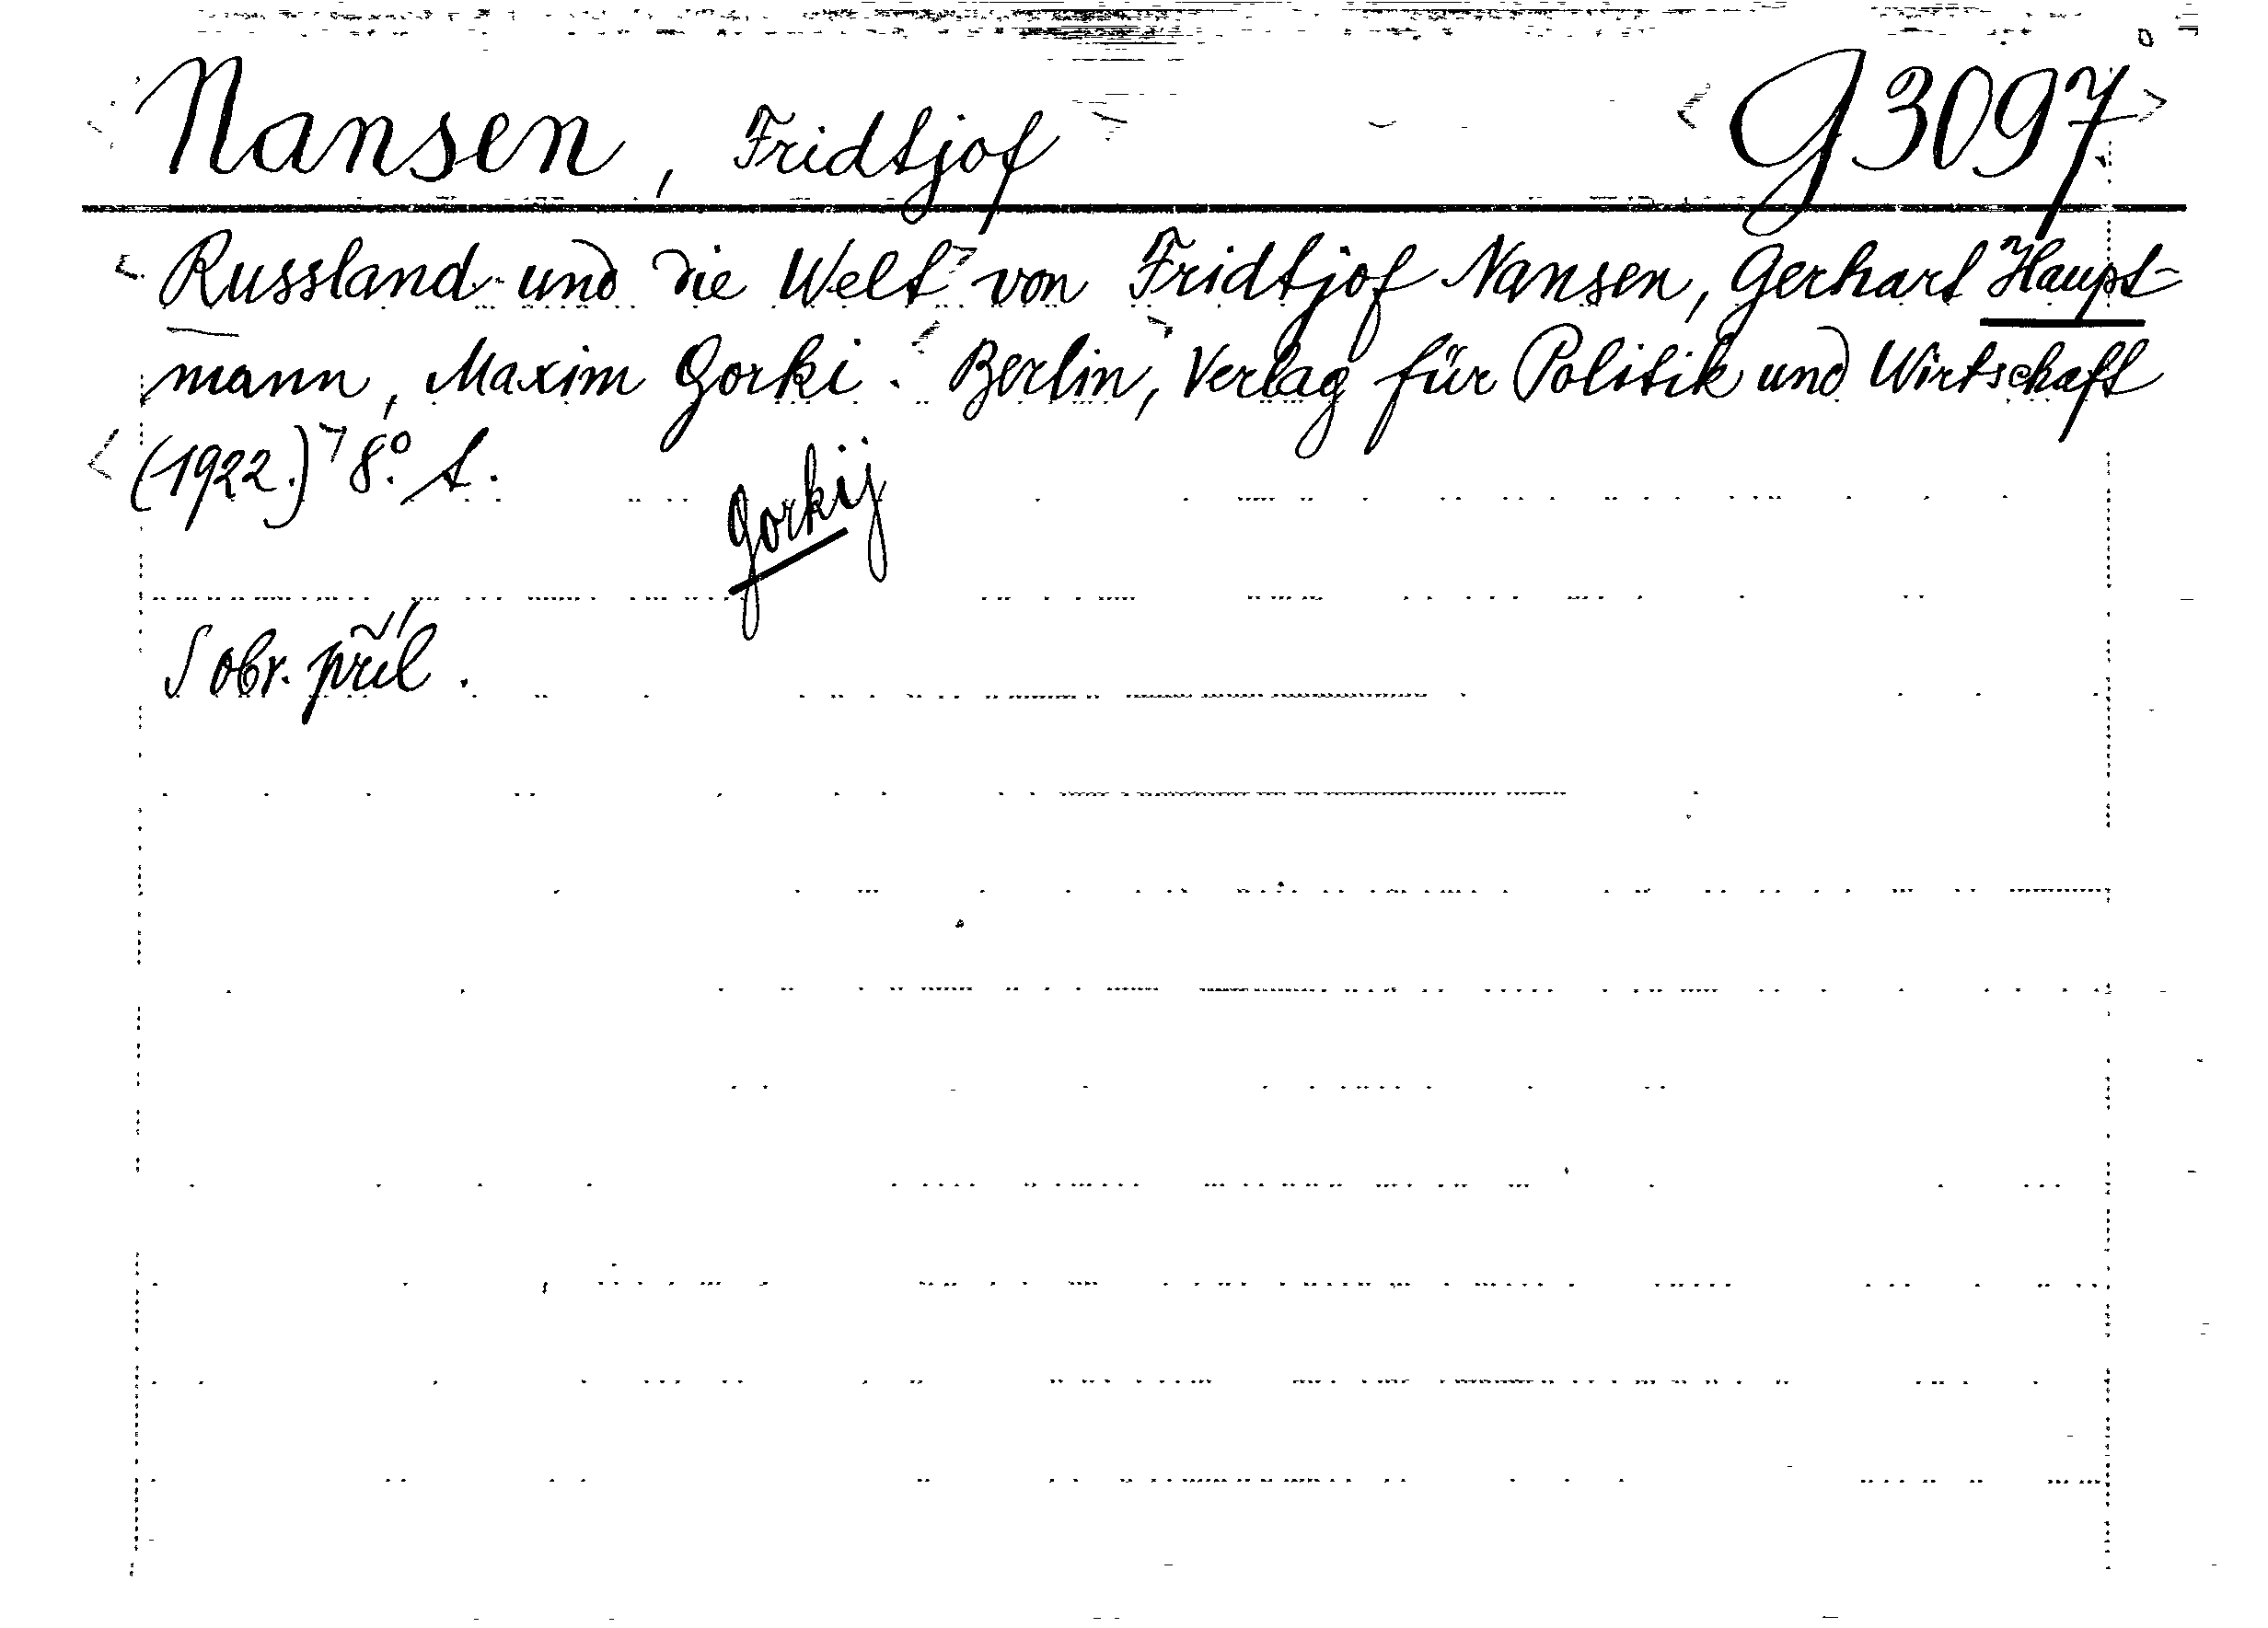 Nansen, Fridtjof G 3097
Russland und die Welt von Fridtjof Nansen, Gerhart Haupt-
mann, Maxim Gorki. Berlin, Verlag für Politik und Wirtschaft
(1922.) 8°. A.
Gorkij
S obr. příl.